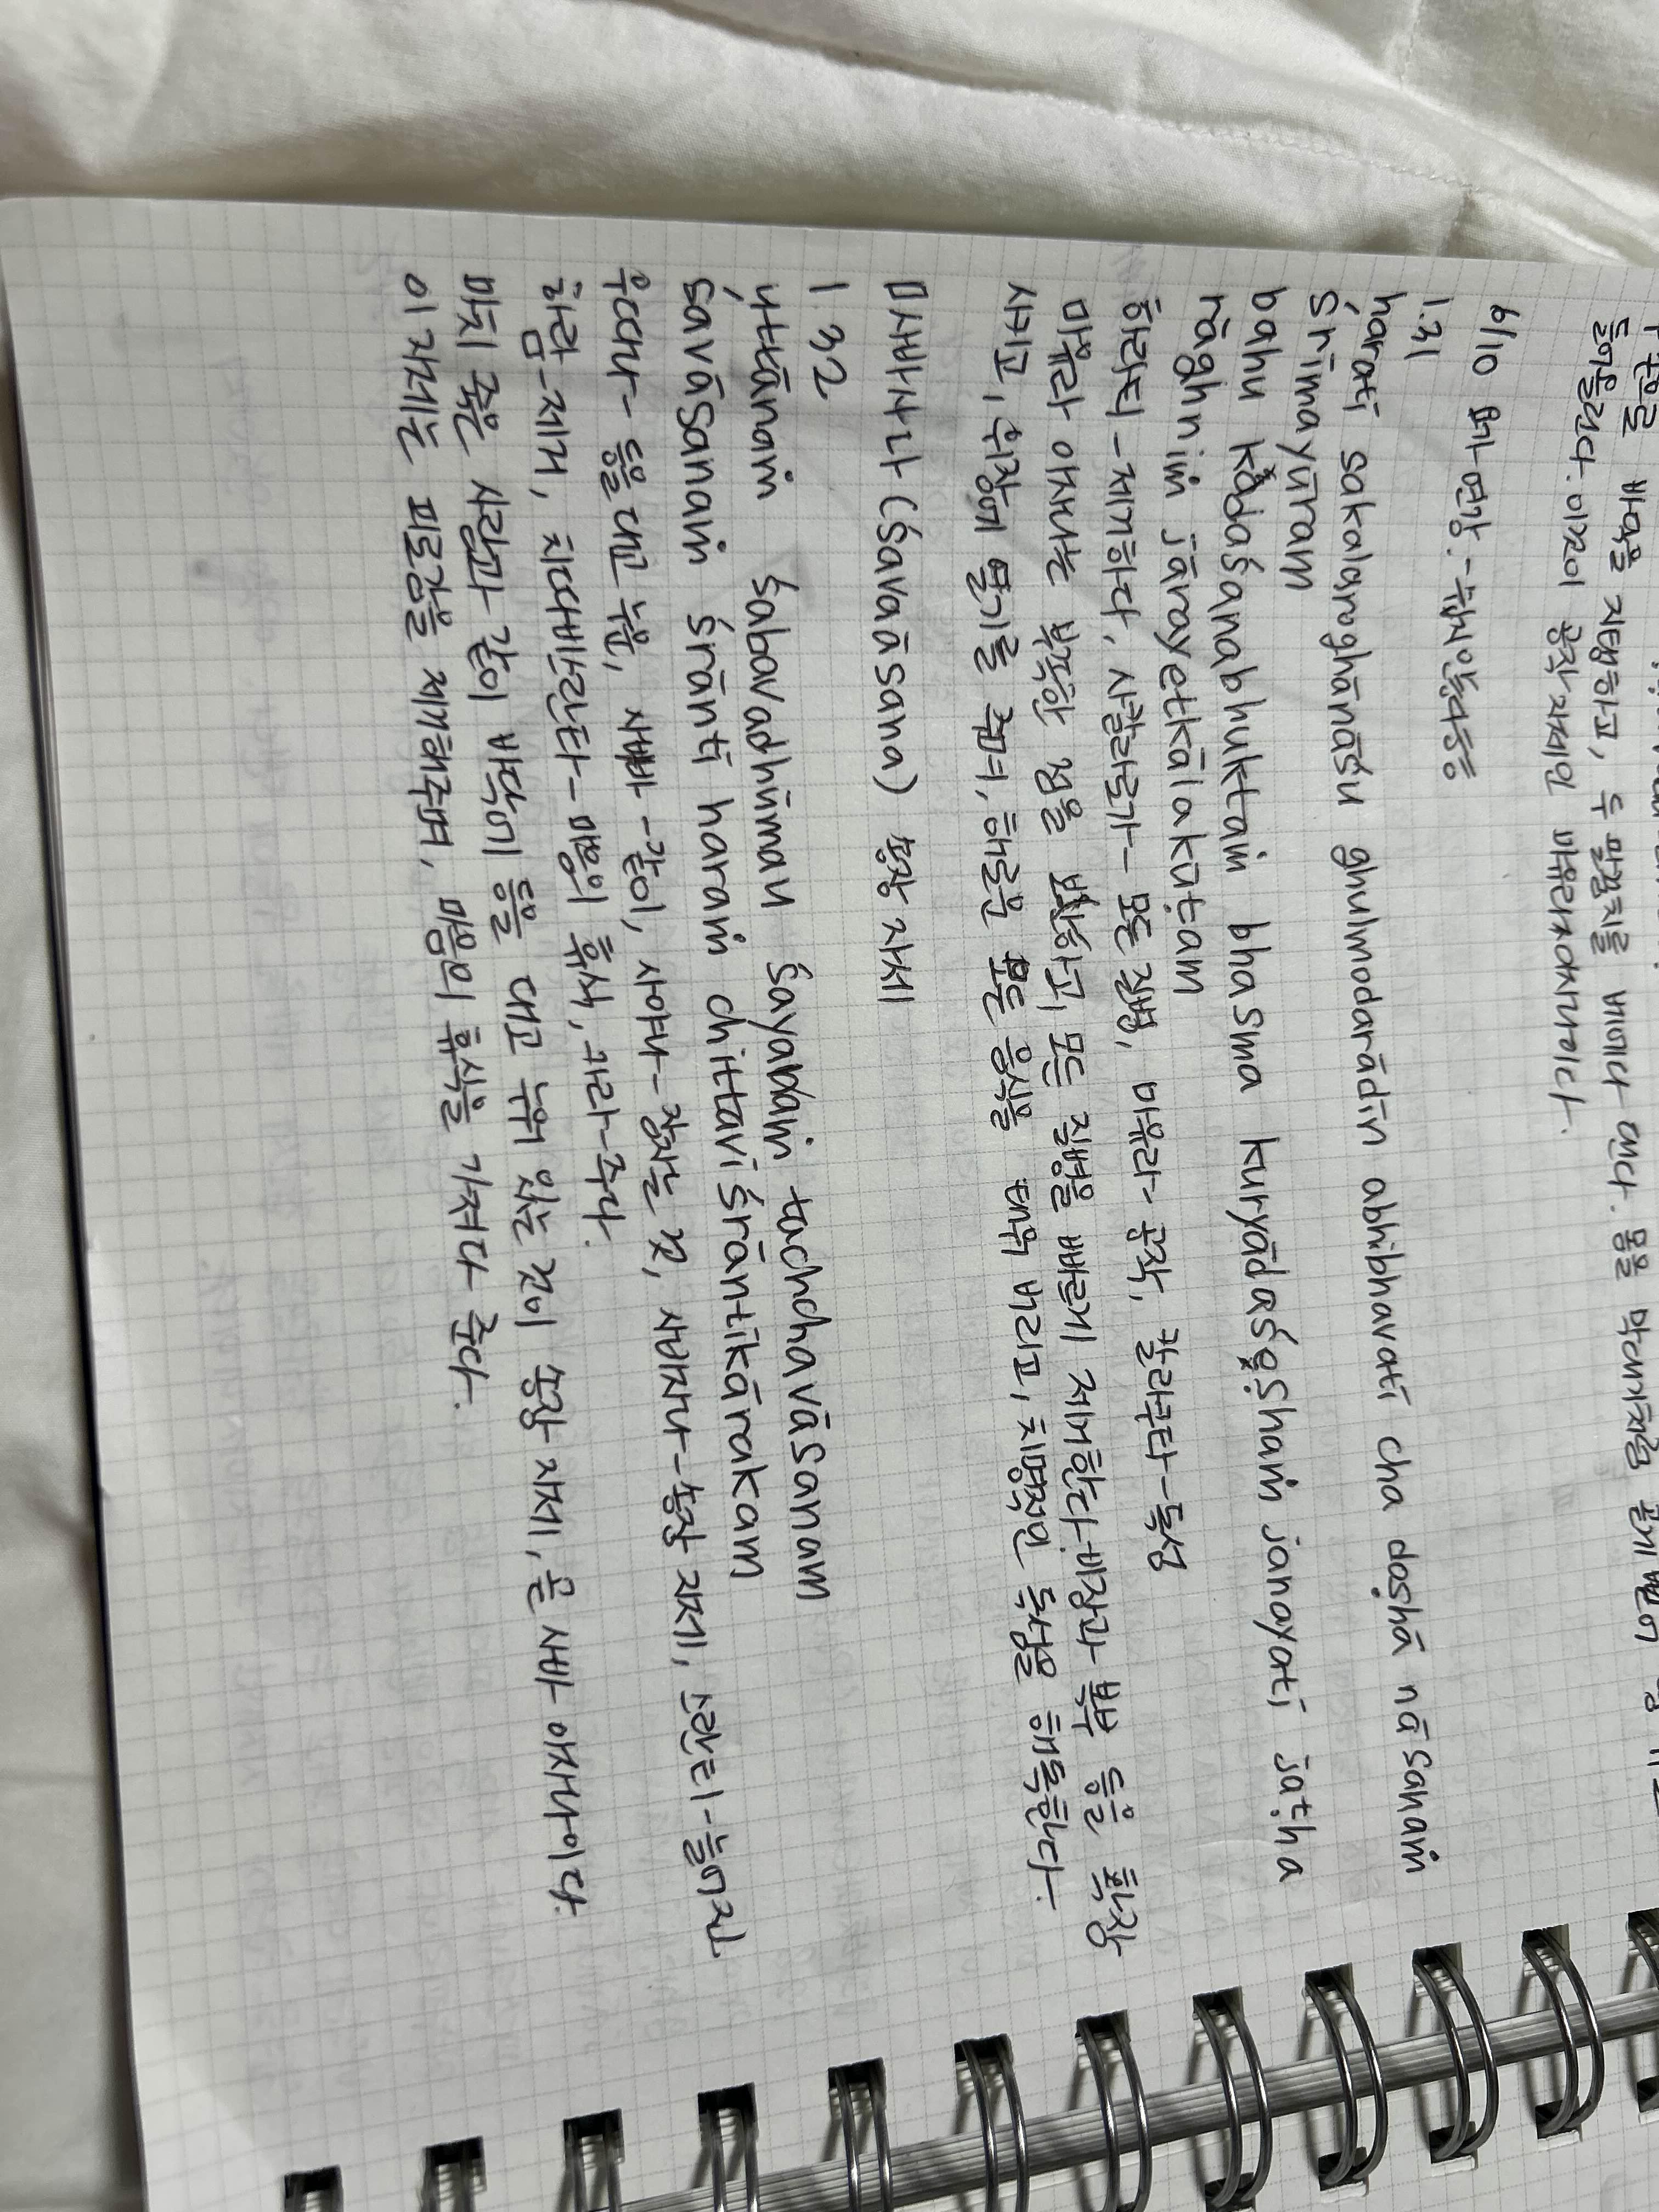 바닥을 지탱하고, 두 팔꿈치를 배에다 댄다. 몸을 막대기처럼 곧게 뻗어
들어올린다. 이것이 공작 자세인 마유라아사나이다.
6/10 폐 건강 - 숩시안토 등등
1.31
harati sakalaroghānāśu ghulmodarādīn abhibhavatī cha doṣhā nāsanaṁ
śrīmayūram
bahu kadaśanabhuktaṁ bhasma kuryādaśeṣhaṁ janayati jaṭha
rāghniṁ jārayetkālakūṭam
하라티 - 제거하다, 사칼라로가 - 모든 질병, 마유라 - 공작, 칼라쿠타 - 독성
마유라 아사나는 부족한 점을 보완하고, 모든 질병을 빠르게 제거한다. 비장과 복부 등을 확장
시키고, 위장에 열기를 주며, 해로운 모든 음식을 태워 버리고, 치명적인 독성을 해독한다.
□ 사바사나 (śavaāsana) 송장 자세
1.32
uttānaṁ śabavadhūmau śayanaṁ tachchavāsanam
śavāsanaṁ śrānti haraṁ chittaviśrāntikārakam
우따나 - 등을 대고 누움, 사바 - 같이, 사야나 - 잠자는 것, 사바사나 - 송장 자세, 스란티 - 늘어진
하람 - 제거, 치따비스란타 - 마음의 휴식, 카라 - 주다.
마치 죽은 사람과 같이 바닥에 등을 대고 누워 있는 것이 송장 자세, 곧 사바 아사나이다.
이 자세는 피로감을 제거해주며, 마음의 휴식을 가져다 준다.